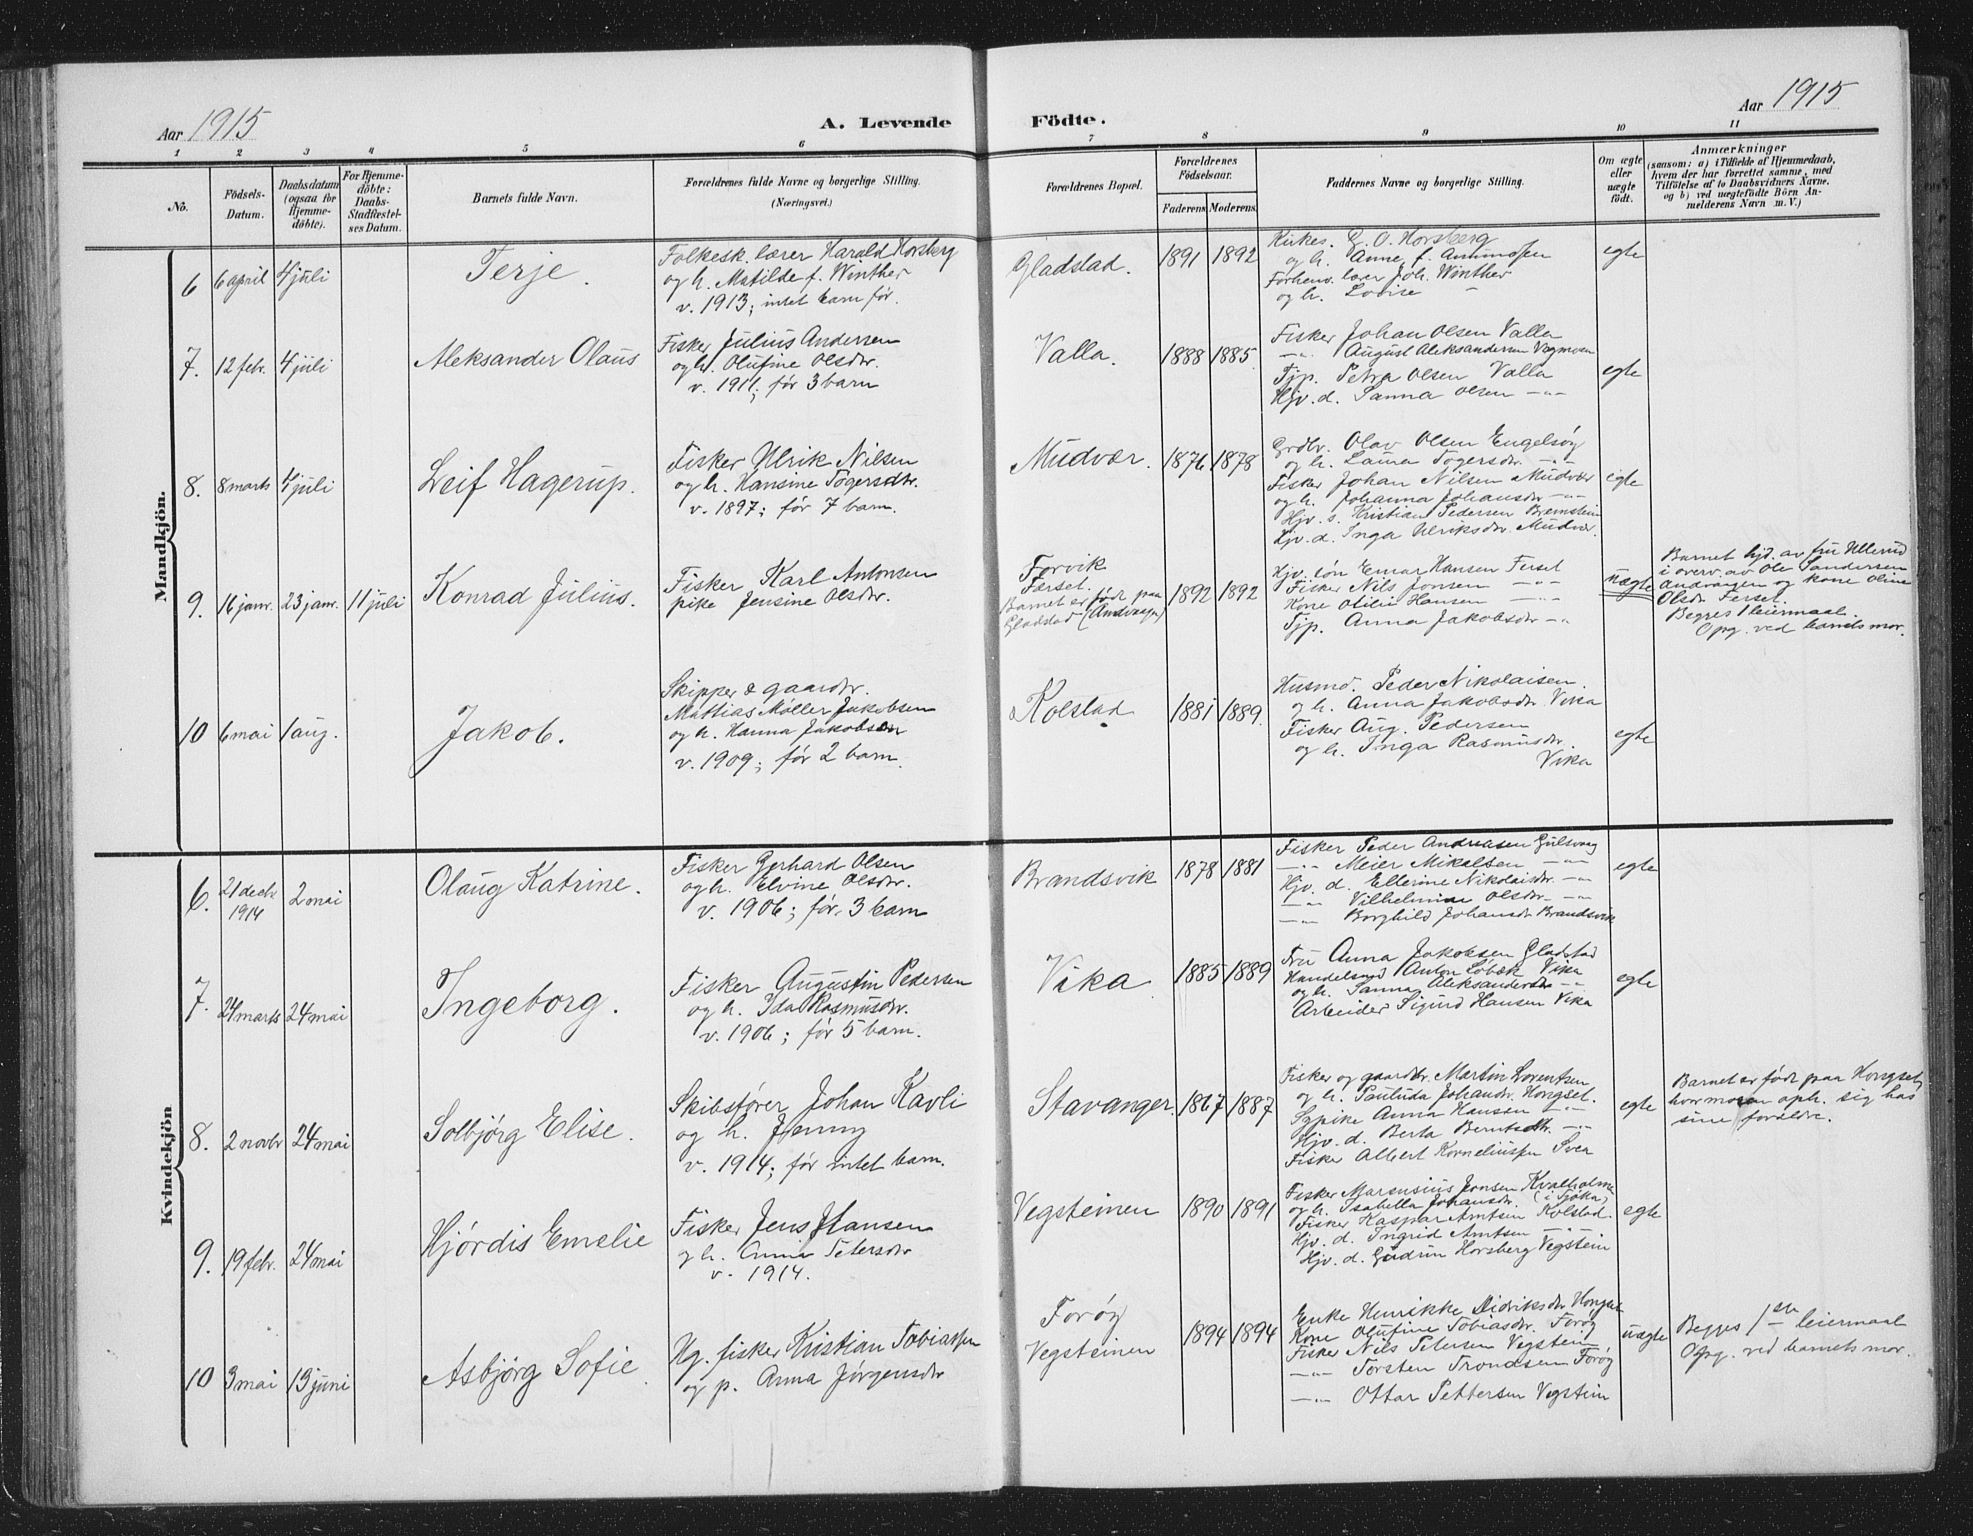 Aar 1915
A. Levende
Födte.
Aar 1915
1 2 3 4 5 6 7 8 9 10 11
No.
Födsels-
Datum.
Daabsdatum
(ogsaa for
Hjemme-
døbte).
For Hjemme-
døbte:
Daabs-
Stadfæstel-
ses Datum.
Barnets fulde Navn.
Forældrenes fulde Navne og borgerlige Stilling.
(Næringsvei.)
Forældrenes Bopæl.
Forældrenes
Födselsaar.
Faderens. Moderens.
Faddernes Navne og borgerlige Stilling.
Om ægte
eller
uægte
født.
Anmærkninger
(saasom: a) i Tilfælde af Hjemmedaab,
hvem der har forrettet samme, med
Tilföielse af to Daabsvidners Navne,
og b) ved uægtefödte Börn An-
melderens Navn m. V.)
Mandkjön.
6 6 april 4 juli
Terje.
Folkesk. lærer Harald Horsberg
og h. Matilde f. Winther
v. 1913; intet barn før.
Gladstad.
1891 1892
Kirkes. E. O. Horsberg
og h. Anne f. Amundsen
Forhenv. lærer Joh. Winther
og h. Lovise -
egte
7. 12 febr. 4 juli
Aleksander Olaus
Fisker Julius Andersen
og h. Olufine Olsdtr.
v. 1911; før 3 barn
Valla.
1888 1885.
Fisker Johan Olsen Valla
-"- August Aleksandersen Vegmoen
Tjp. Petra Olsen Valla
Hjv. d. Sanna Olsen -"-
egte
8. 8 marts 4 juli
Leif Hagerup.
Fisker Ulrik Nilsen
og h. Hansine Togersdtr.
v. 1897; før 7 barn.
Mudvær.
1876 1878
Grdbr. Olav Olsen Engelsøy
og h. Laura Togersdtr. -"-
Fisker Johan Nilsen Mudvær
og h. Johanna Johansdtr -"-
Hjv. s. Kristian Pedersen Bremstein
Hjv. d. Inga Ulriksdtr. Mudvær.
egte
9. 16 janr. 23 janr. 11 juli
Konrad Julius.
Fisker Karl Antonsen
pike Jensine Olsdtr.
Forvik
Færset.
Barnet er født paa
Gladstad (Andvaagen)
1892 1892
Hjv. søn Einar Hansen Ferset
Fisker Nils Jonsen -"-
Kone Otilie Hansen -"-
Tjp. Anna Jakobsdtr -"-
uægte
Barnet hjd. av fru Ullerud
i overv. av Ole Sandersen
Andvaagen og kone Oline
Olsdtr Ferset.
Begges 1 leiermaal.
Opg. ved barnets mor.
10 6 mai 1 aug.
Jakob.
Skipper & gaardbr.
Mattias Møller Jakobsen
og h. Hanna Jakobsen
v. 1909; før 2 barn.
Kolstad
1881 1889.
Husmd. Peder Nikolaisen.
og h. Anna Jakobsdtr Vika
Fisker Aug. Pedersen
og h. Inga Rasmusdtr.
Vika
egte
Kvindekjön
6. 21 decbr 1914 2 mai
Olaug Katrine.
Fisker Gerhard Olsen
og h. Elvine Olsdtr.
v. 1906; før 3 barn
Brandsvik
1878 1881
Fisker Peder Andreasen Gulsvaag
-"- Meier Mikalsen -"-
Hjv. d. Ellerine Nikolaisdtr. -"-
-"- Vilhelmine Olsdtr. -"-
-"- Borghild Johansdtr Brandsvik
egte
7. 24 marts 24 mai
Ingeborg.
Fisker Augustin Pedersen
og h. Ida Rasmusdtr.
v. 1906; før 5 barn.
Vika
1885 1889
Fru Anna Jakobsen Gladstad
Handelsmd Anton Løbæk Vika
og h. Sanna Aleksandersdtr -"-
Arbeider Sigurd Hansen Vika
egte
8. 2 novbr 24 mai
Solbjørg Elise.
Skibsfører Johan Kavli
og h. Jenny
v. 1914; før intet barn.
Stavanger
1867 1887
Fisker og gaardbr. Martin Lorentsen
og h. Paulida Johansdtr. Hongset.
Sypike Anna Hansen -"-
Hjv. d. Berta Berntsdtr. -"-
Fisker Albert Korneliussen Svea
egte
Barnet er født paa Hongset,
hvor moren oph. sig hos
sine foreldre.
9. 19 febr. 24 mai
Hjørdis Emelie
Fisker Jens Hansen
og h. Anna Petersdtr
v. 1914.
Vegsteinen
1890 1891
Fisker Marsusius Jonsen Kvalholmen
og h. Isabella Johansdtr. (i Sjøka)
Fisker Kaspar Amtsen Kolstad.
Hjv. d. Ingrid Amtsen -"-
Hjv. d. Gudrun Horsberg Vegstein
egte
10 3 mai 13 juni
Asbjørg Sofie.
Ug. fisker Kristian Tobiassen
og p. Anna Jørgensdtr
Forøy
Vegsteinen
1894 1894
Enke Henrikke Didriksdtr Hongset
Kone Olufine Tobiasdtr. Forøy
Fisker Nils Petersen Vegstein
-"- Torsten Trondsen Forøy
-"- Ottar Pettersen Vegstein
uægte
Begges 1ste leiermaal
Opg. ved barnets mor.